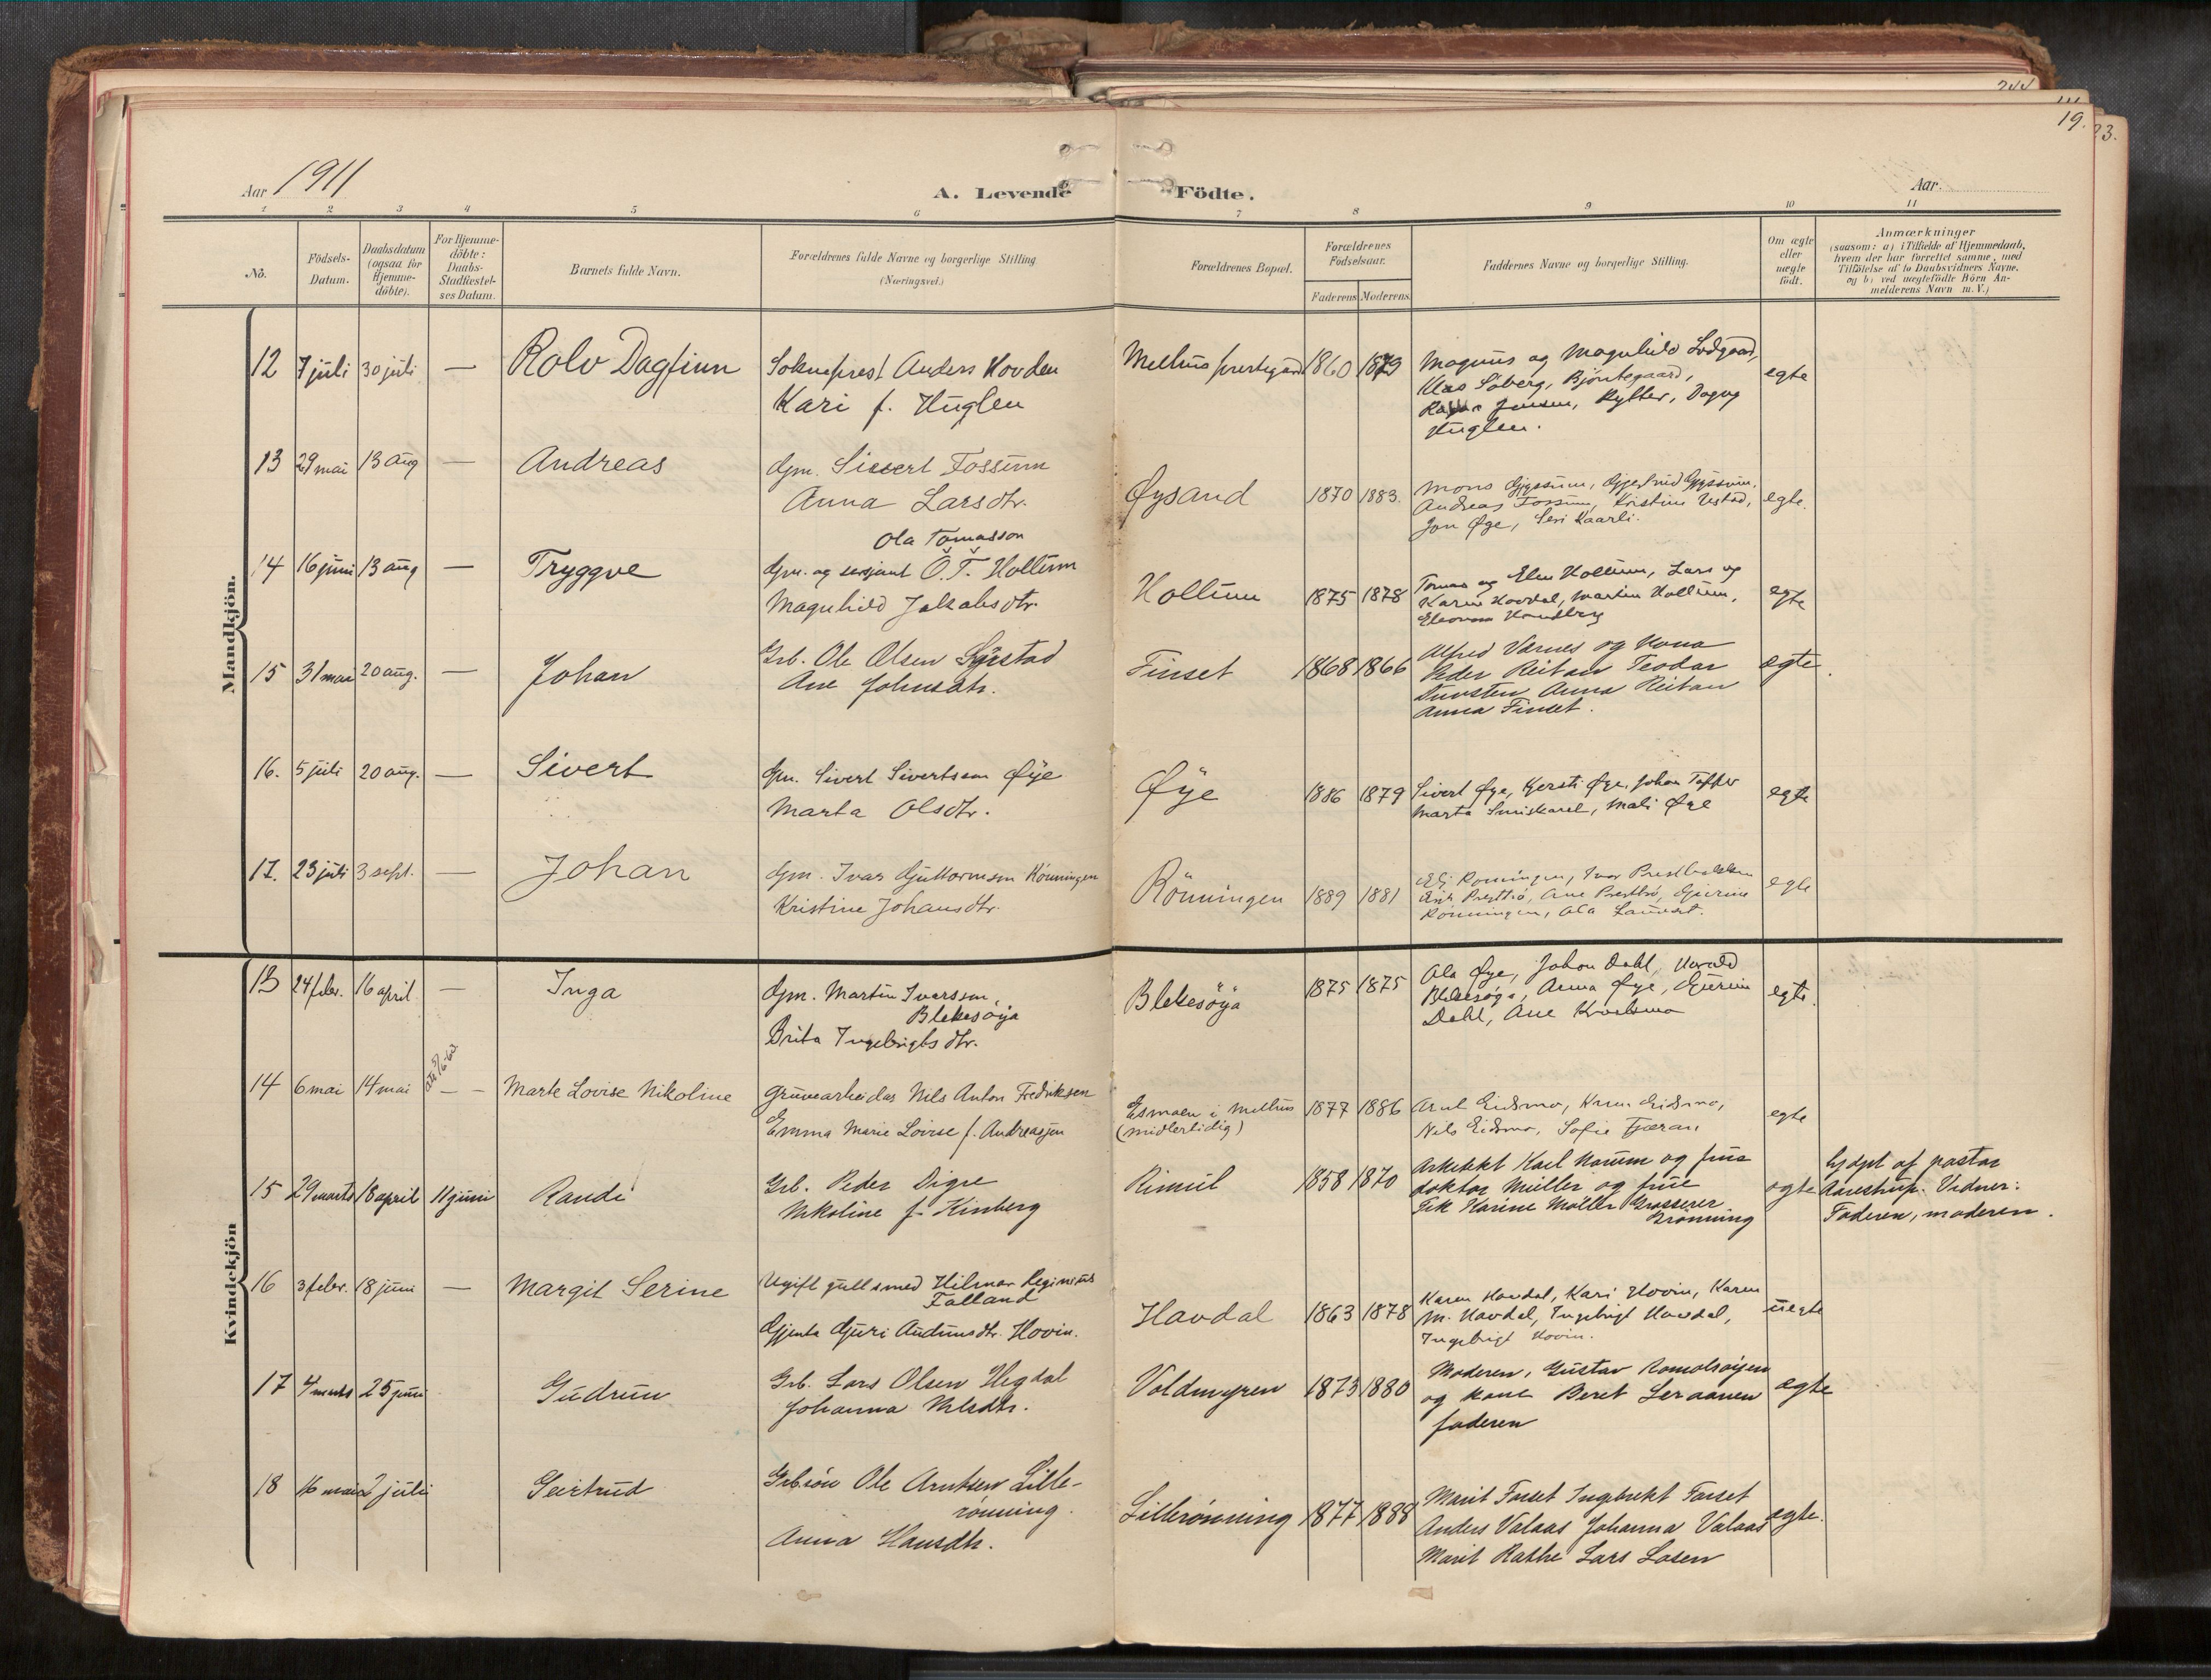 244
19.
23.
Aar 1911
A. Levende Födte.
Aar
1 2 3 4 5 6 7 8 9 10 11
No.
Födsels-
Datum.
Daabsdatum
(ogsaa for
Hjemme-
döbte).
For Hjemme-
döbte:
Daabs-
Stadfæstel-
ses Datum.
Barnets fulde Navn.
Forældrenes fulde Navne og borgerlige Stilling
(Næringsvei.)
Forældrenes Bopæl.
Forældrenes
Födselsaar.
Faderens Moderens.
Faddernes Navne og borgerlige Stilling.
Om ægte
eller
uægte
födt.
Anmærkninger
(saasom: a) i Tilfælde af Hjemmedaab,
hvem der har forrettet samme, med
Tilföielse af to Daabsvidners Navne,
og b) ved uægtefödte Börn An-
melderens Navn m. V.)
Mandkjön.
12 7 juli 30 juli — Rolv Dagfinn
Sokneprest Anders Hovden
Kari f. Huglen
Melhus prestegard 1860 1879
Magnus og Magnhild Lodgaard,
Klas Söberg, Bjöntegaard,
Jensen, Rytter, Dagny
Huglen.
egte
13 29 mai 13 aug — Andreas
Gm. Sivert Fossum
Anna Larsdtr.
Øysand 1870 1883.
Mons Gjyssum, Gjertrud Gjyssum,
Andreas Fossum, Kristine Ustad,
Jon Øye, Seri Kaarli.
egte.
14 16 juni 13 aug — Tryggve
Ola Tomasson
Gm. og sersjant O. T. Hollum
Magnhild Jakobsdtr.
Hollum 1875 1878
Tomas og Elen Hollum, Lars og
Karen Havdal, Martin Hollum,
Eleonora
egte
15 31 mai 20 aug. — Johan
Grb. Ole Olsen Syrstad
Ane Johnsdtr.
Finset 1868 1866
Alfred Varnes og Kona
Peder Reitan Teodor
Tursten Anna Reitan
Anna Finset.
egte.
16. 5 juli 20 aug. — Sivert
Gm. Sivert Sivertsson Øye
Marta Olsdtr.
Øye 1886 1879
Sivert Øye, Kjersti Øye, Johan
Marta Smiskarel, Mali Øye
egte
17. 23 juli 3 sept. — Johan
Gm. Ivar Guttormson Rönningen
Kristine Johansdtr.
Rönningen 1889 1881
Rönningen, Ivar
Ane Presttrö, Gjurine
Rönningen, Ola
egte
Kvindekjön
13 24 febr. 16 april — Inga
Gm. Martin Ivarsson,
Blekesöya
Brita Ingebrigtsdtr.
Blekesöya 1875 1875
Ola Øye, Johan Dahl, Harald
Blekesöya, Anna Øye, Gjurine
Dahl, Ane Kvalsmo
egte.
14 6 mai 14 mai — Marte Lovise Nikoline
Gruvearbeidar Nils Anton Fredriksen
Emma Marie Lovise f. Andreassen
Esmoen i Melhus
(midlertidig)
1877 1886
Arnt Eidsmo, Karen Eidsmo,
Nils Eidsmo, Sofie Fjæran
egte
15 29 marts 18 april 11 juni Randi
Grb. Peder Digre
Nikoline f. Kinberg
Rimul 1858 1870
Arkitekt Karl Norum og frue
doktor Müller og frue
Frk Karine Möller Grosserer
Brönning
egte
hjdpt af pastor
Aarestrup. Vidner:
Faderen, moderen.
16 3 febr. 18 juni — Margit Serine
Ugift gullsmed Hilmar Reginius
Falland
Gjenta Guri Audunsdtr. Hovin.
Havdal 1863 1878
Karen Havdal, Kari Hovin, Karen
M. Havdal, Ingebrigt Havdal,
Ingebrigt Hovin.
uegte
17 4 marts 25 juni Gudrun
Grb. Lars Olsen Hegdal
Johanna Nilsdtr.
Voldmyren 1873 1880
Moderen, Gustav Romolsöyen
og kone Beret Leraanen
faderen
egte
18 16 mai 2 juli Gertrud
Grbsön Ole Arntsen Lille-
rönning.
Anna Hansdtr.
Lillerönning 1877 1888
Marit Forset Ingebrekt Forset
Anders Valaas Johanna Valaas
Marit Rathe Lars Losen
egte.